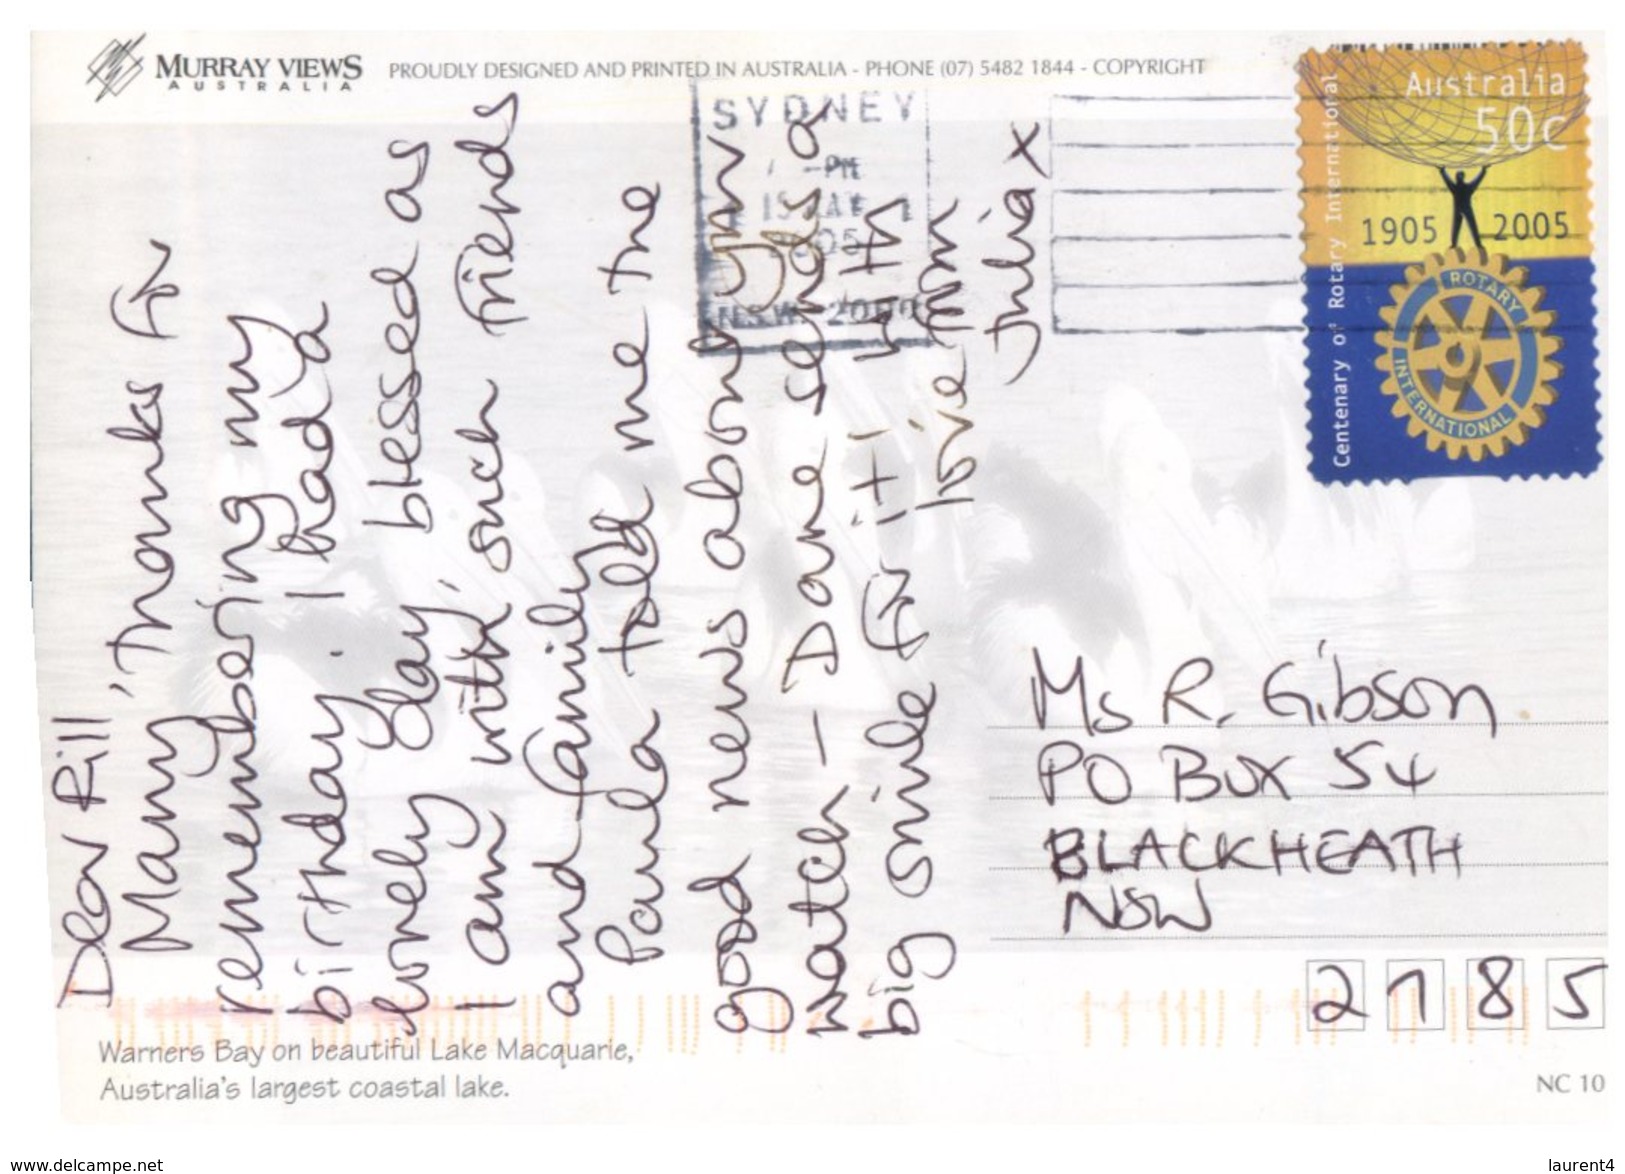 MURRAY VIEWS
AUSTRALIA
PROUDLY DESIGNED AND PRINTED IN AUSTRALIA - PHONE (07) 5482 1844 - COPYRIGHT
SYDNEY
-PM
2005
N.S.W. 2000
Australia
50c
1905 2005
Centenary of Rotary International
ROTARY
INTERNATIONAL
Dear Rill,
Many thanks for
remembering my
birthday. I had a
lovely day, blessed as
I am with such friends
and family
Paula told me the
good news about your
watch - Dave sends a
big smile for it! With
love from
Julia x
Ms R. Gibson
PO BOX 54
BLACKHEATH
NSW
2785
Warners Bay on beautiful Lake Macquarie,
Australia's largest coastal lake.
NC 10
www.delcampe.net
laurent4